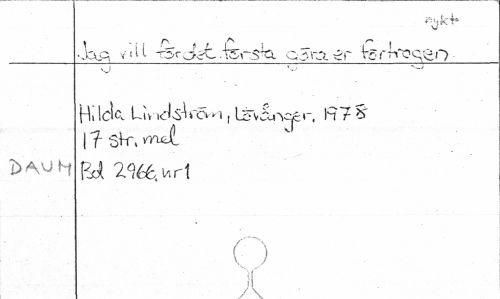 nykt
Jag vill för det första göra er förtrogen
Hilda Lindström, Lövånger, 1978
17 str. mel
DAUM Bd 2966, nr 1